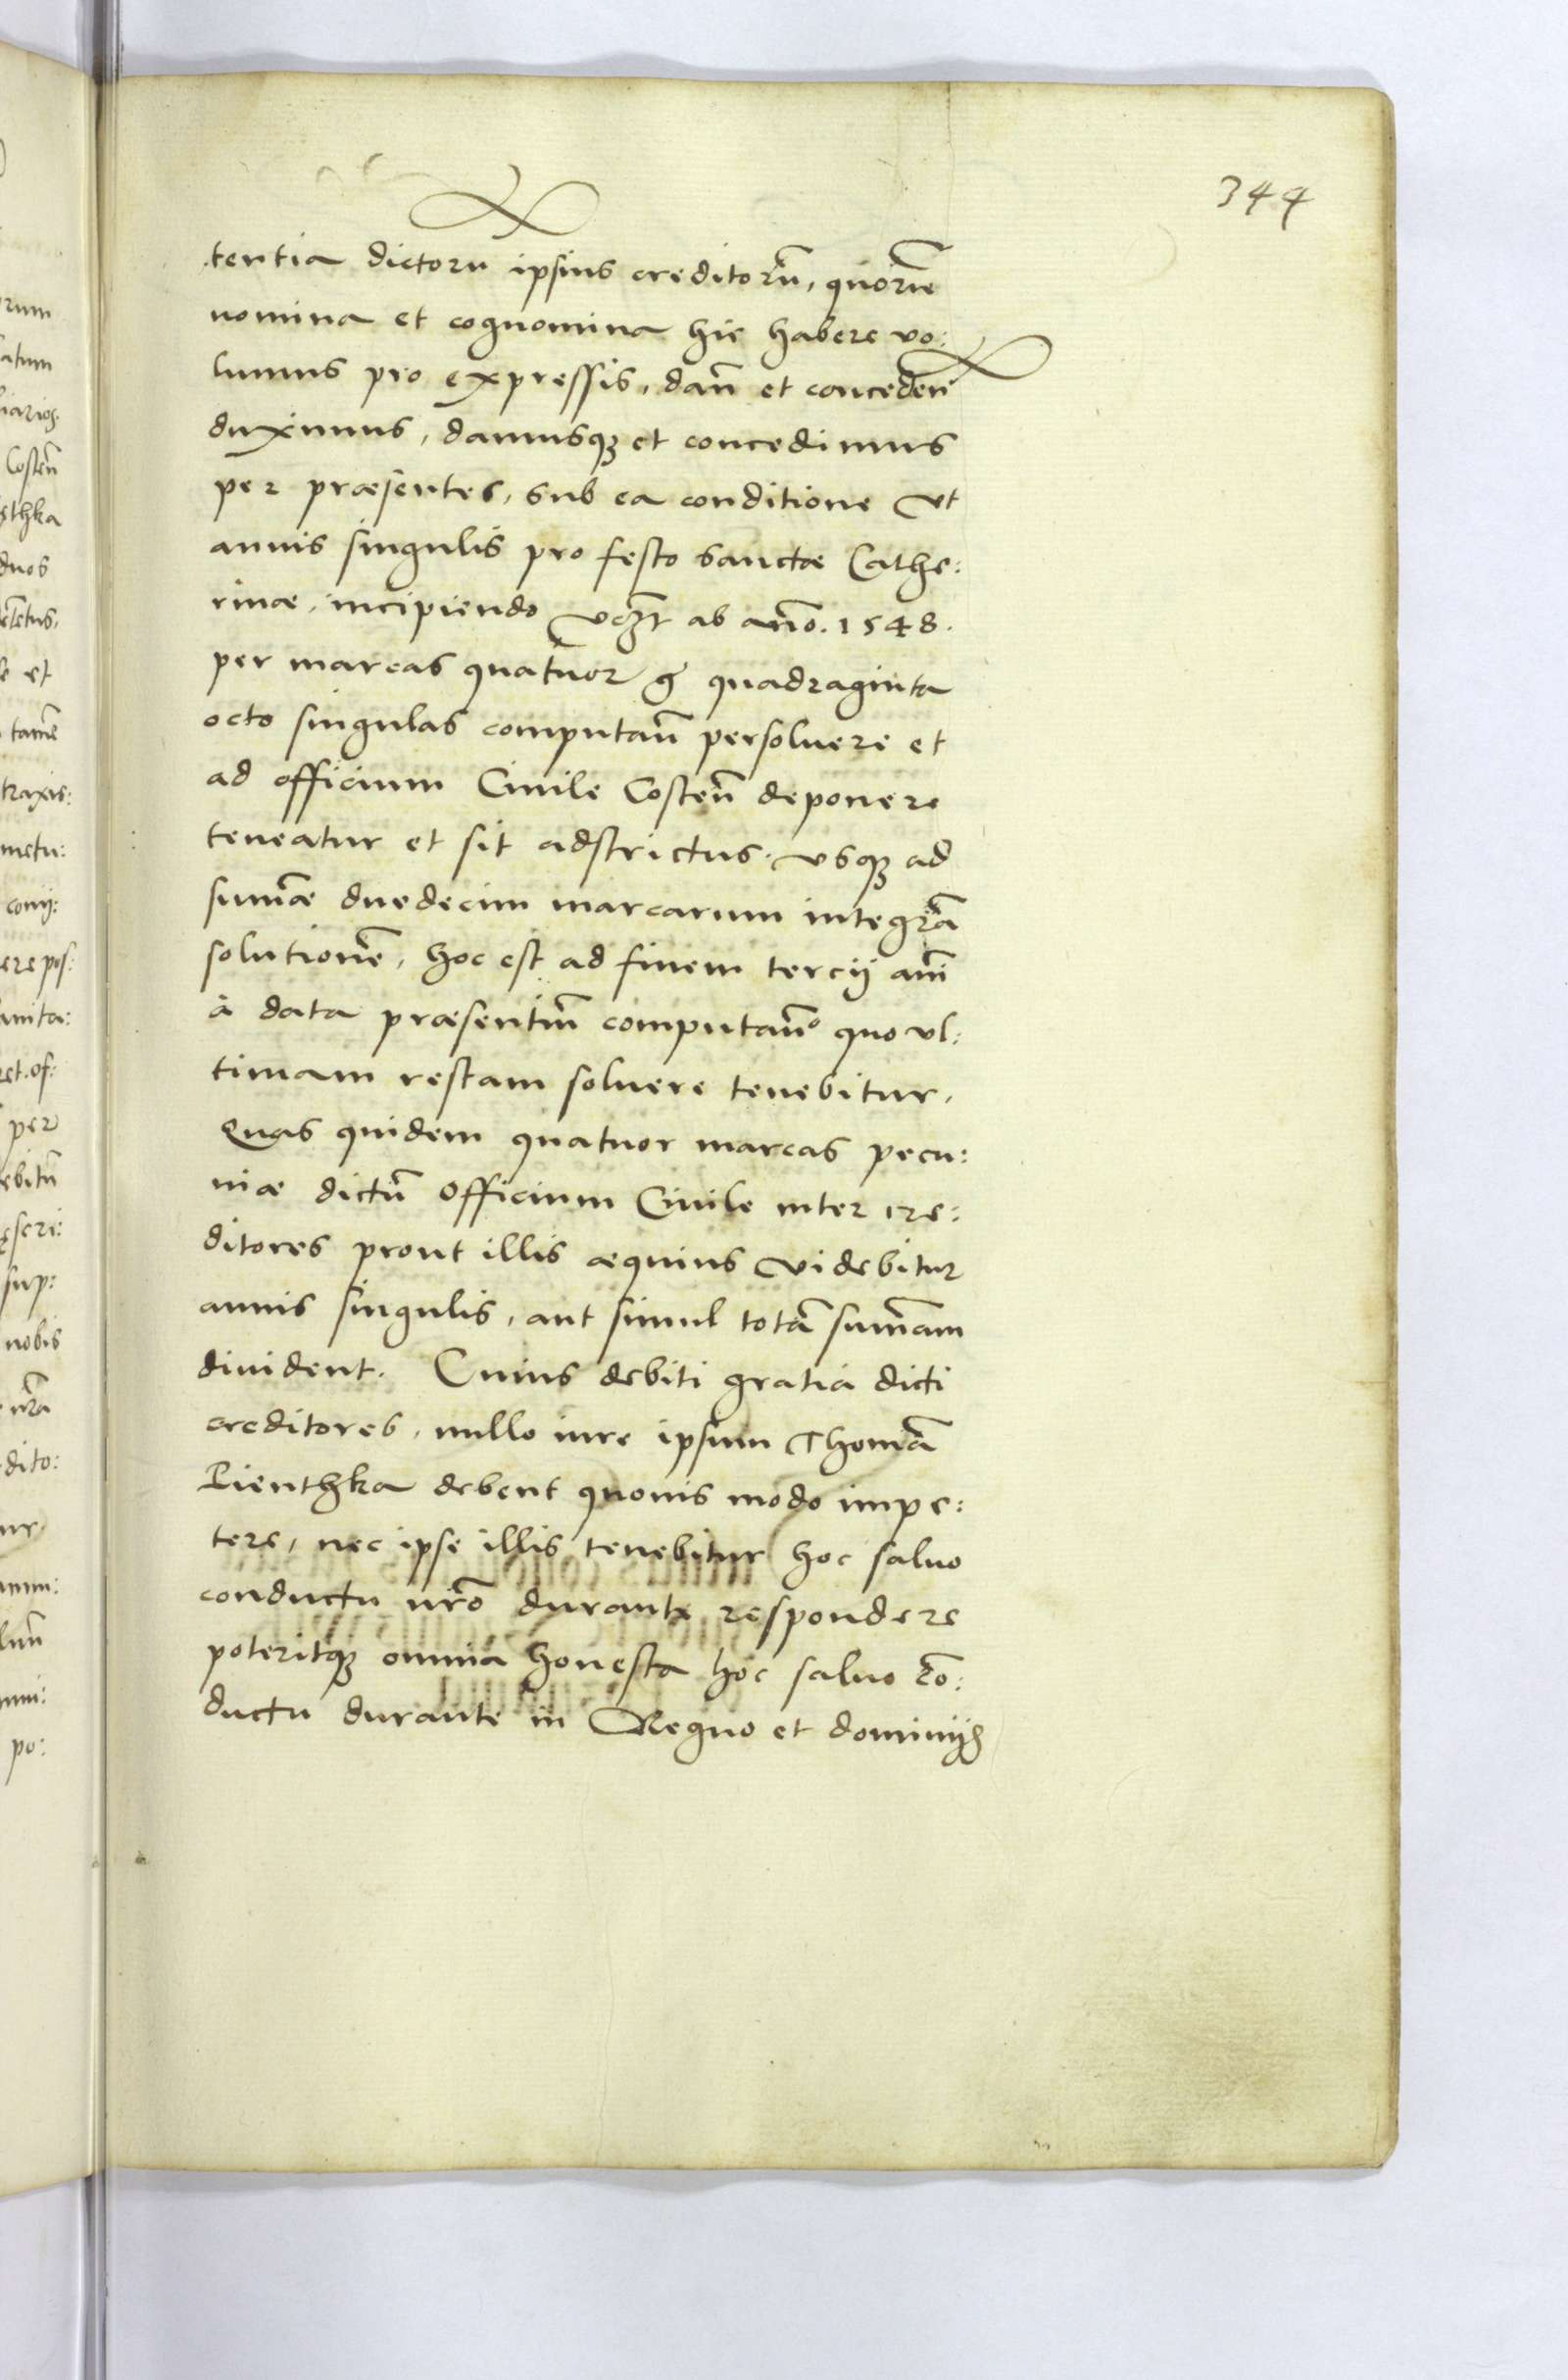 344
tentia dictoru ipsius creditorũ, quorũe
nomina et cognomina hic habere vo:
lumus pro expressis, dañ et conceden̄
duximus, damusqꝫ et concedimus
per præsentes, sub ea conditione vt
annis singulis pro festo sanctæ Cathe:
rinæ, incipiendo vcꝫt ab año. 1548.
per marcas quatuor g̃ quadraginta
octo singulas computañ persoluere et
ad officium Ciuile Costeñ deponere
teneatur et sit adstrictus. vsqꝫ ad
sum̃æ duedecim marcarum integrã
solutionẽ, hoc est ad finem tercij añi
à data præsentiũ computañº quo vl:
timam restam soluere tenebitur.
Quas quidem quatuor marcas pecu:
niæ dictũ officium Ciuile inter cre:
ditores prout illis æquius videbitur
annis singulis, aut simul totã sum̃am
diuident. Cuius debiti gratia dicti
creditores, nullo iure ipsum Thomã
Pienthka debent quouis modo impe:
tere, nec ipse illis tenebitur hoc saluo
conductu nr̃o durante respondere
poteritqꝫ omnia honesta hoc saluo cõ:
ductu durante in Regno et dominijs
rum
atum
Costeñ
duos
et
tamẽ
traxis:
metu:
ere pos:
et. of:
per
ebitũ
sup:
nobis
nr̃a
dito:
po: